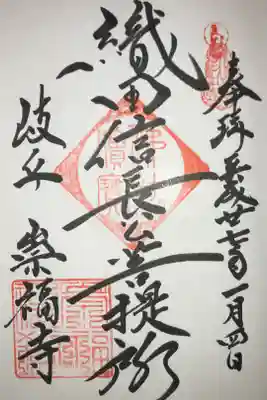 奉拝 平成廿七年一月四日
織田信長公菩提所
岐阜 崇福寺